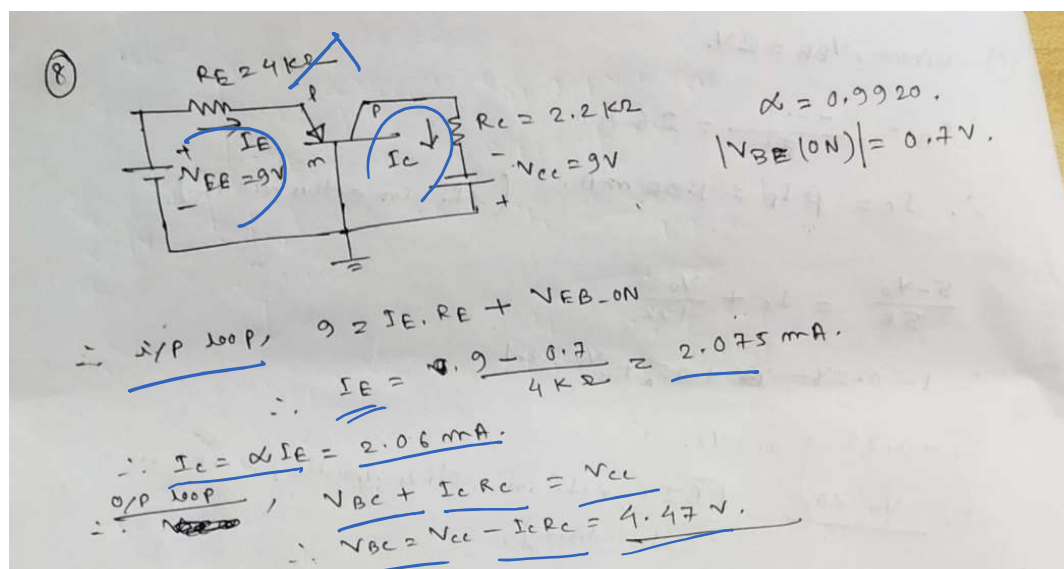 8
RE = 4KΩ
P
P
n
IE
+
VEE = 9V
-
Ic
Rc = 2.2 KΩ
-
Vcc = 9V
+
α = 0.9920.
|VBE(ON)| = 0.7V.
∴ i/p loop, 9 = IE. RE + VEB-ON
∴ IE = 9 - 0.7 / 4KΩ = 2.075 mA.
∴ Ic = αIE = 2.06 mA.
∴ O/P loop, VBC + IcRc = Vcc
∴ VBC = Vcc - IcRc = 4.47 V.